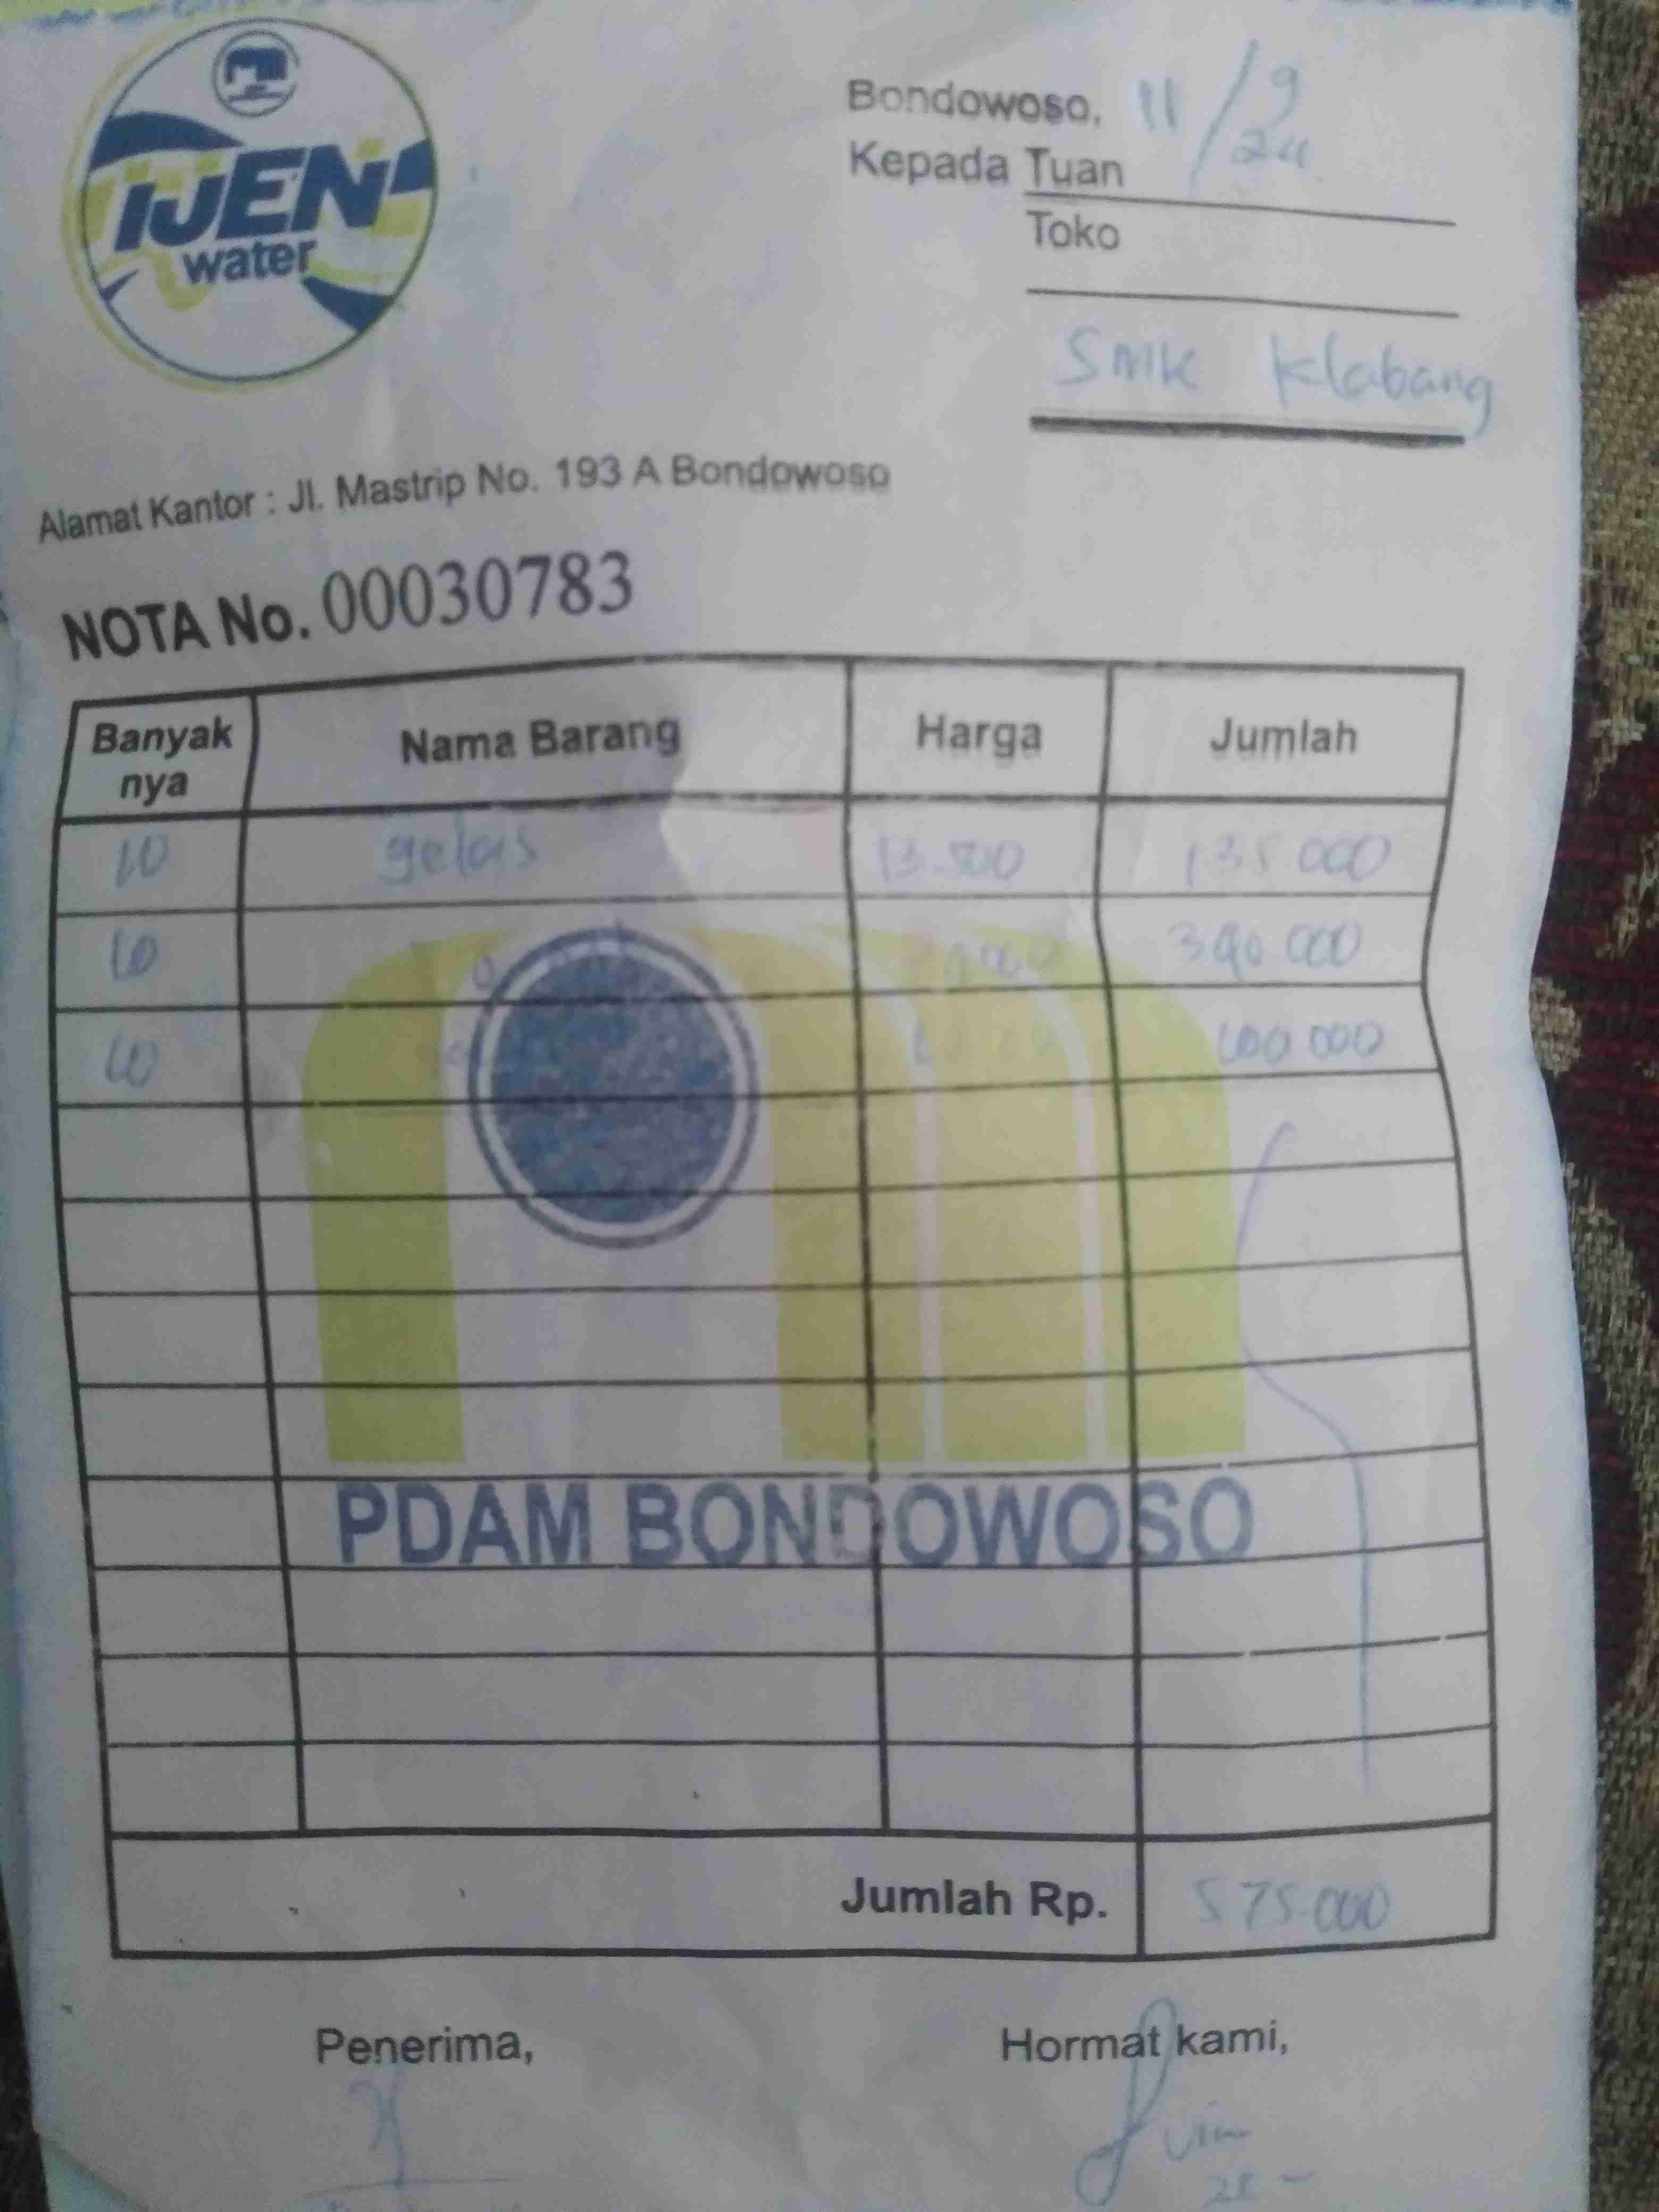 IJEN
water
Bondowoso, 11/9
24
Kepada Tuan
Toko
SMK Klabang
Alamat Kantor : Jl. Mastrip No. 193 A Bondowoso
NOTA No. 00030783
Banyak nya Nama Barang Harga Jumlah
10 gelas 13.500 135 000
10 390 000
10 100 000
PDAM BONDOWOSO
Jumlah Rp. 575.000
Penerima, Hormat kami,